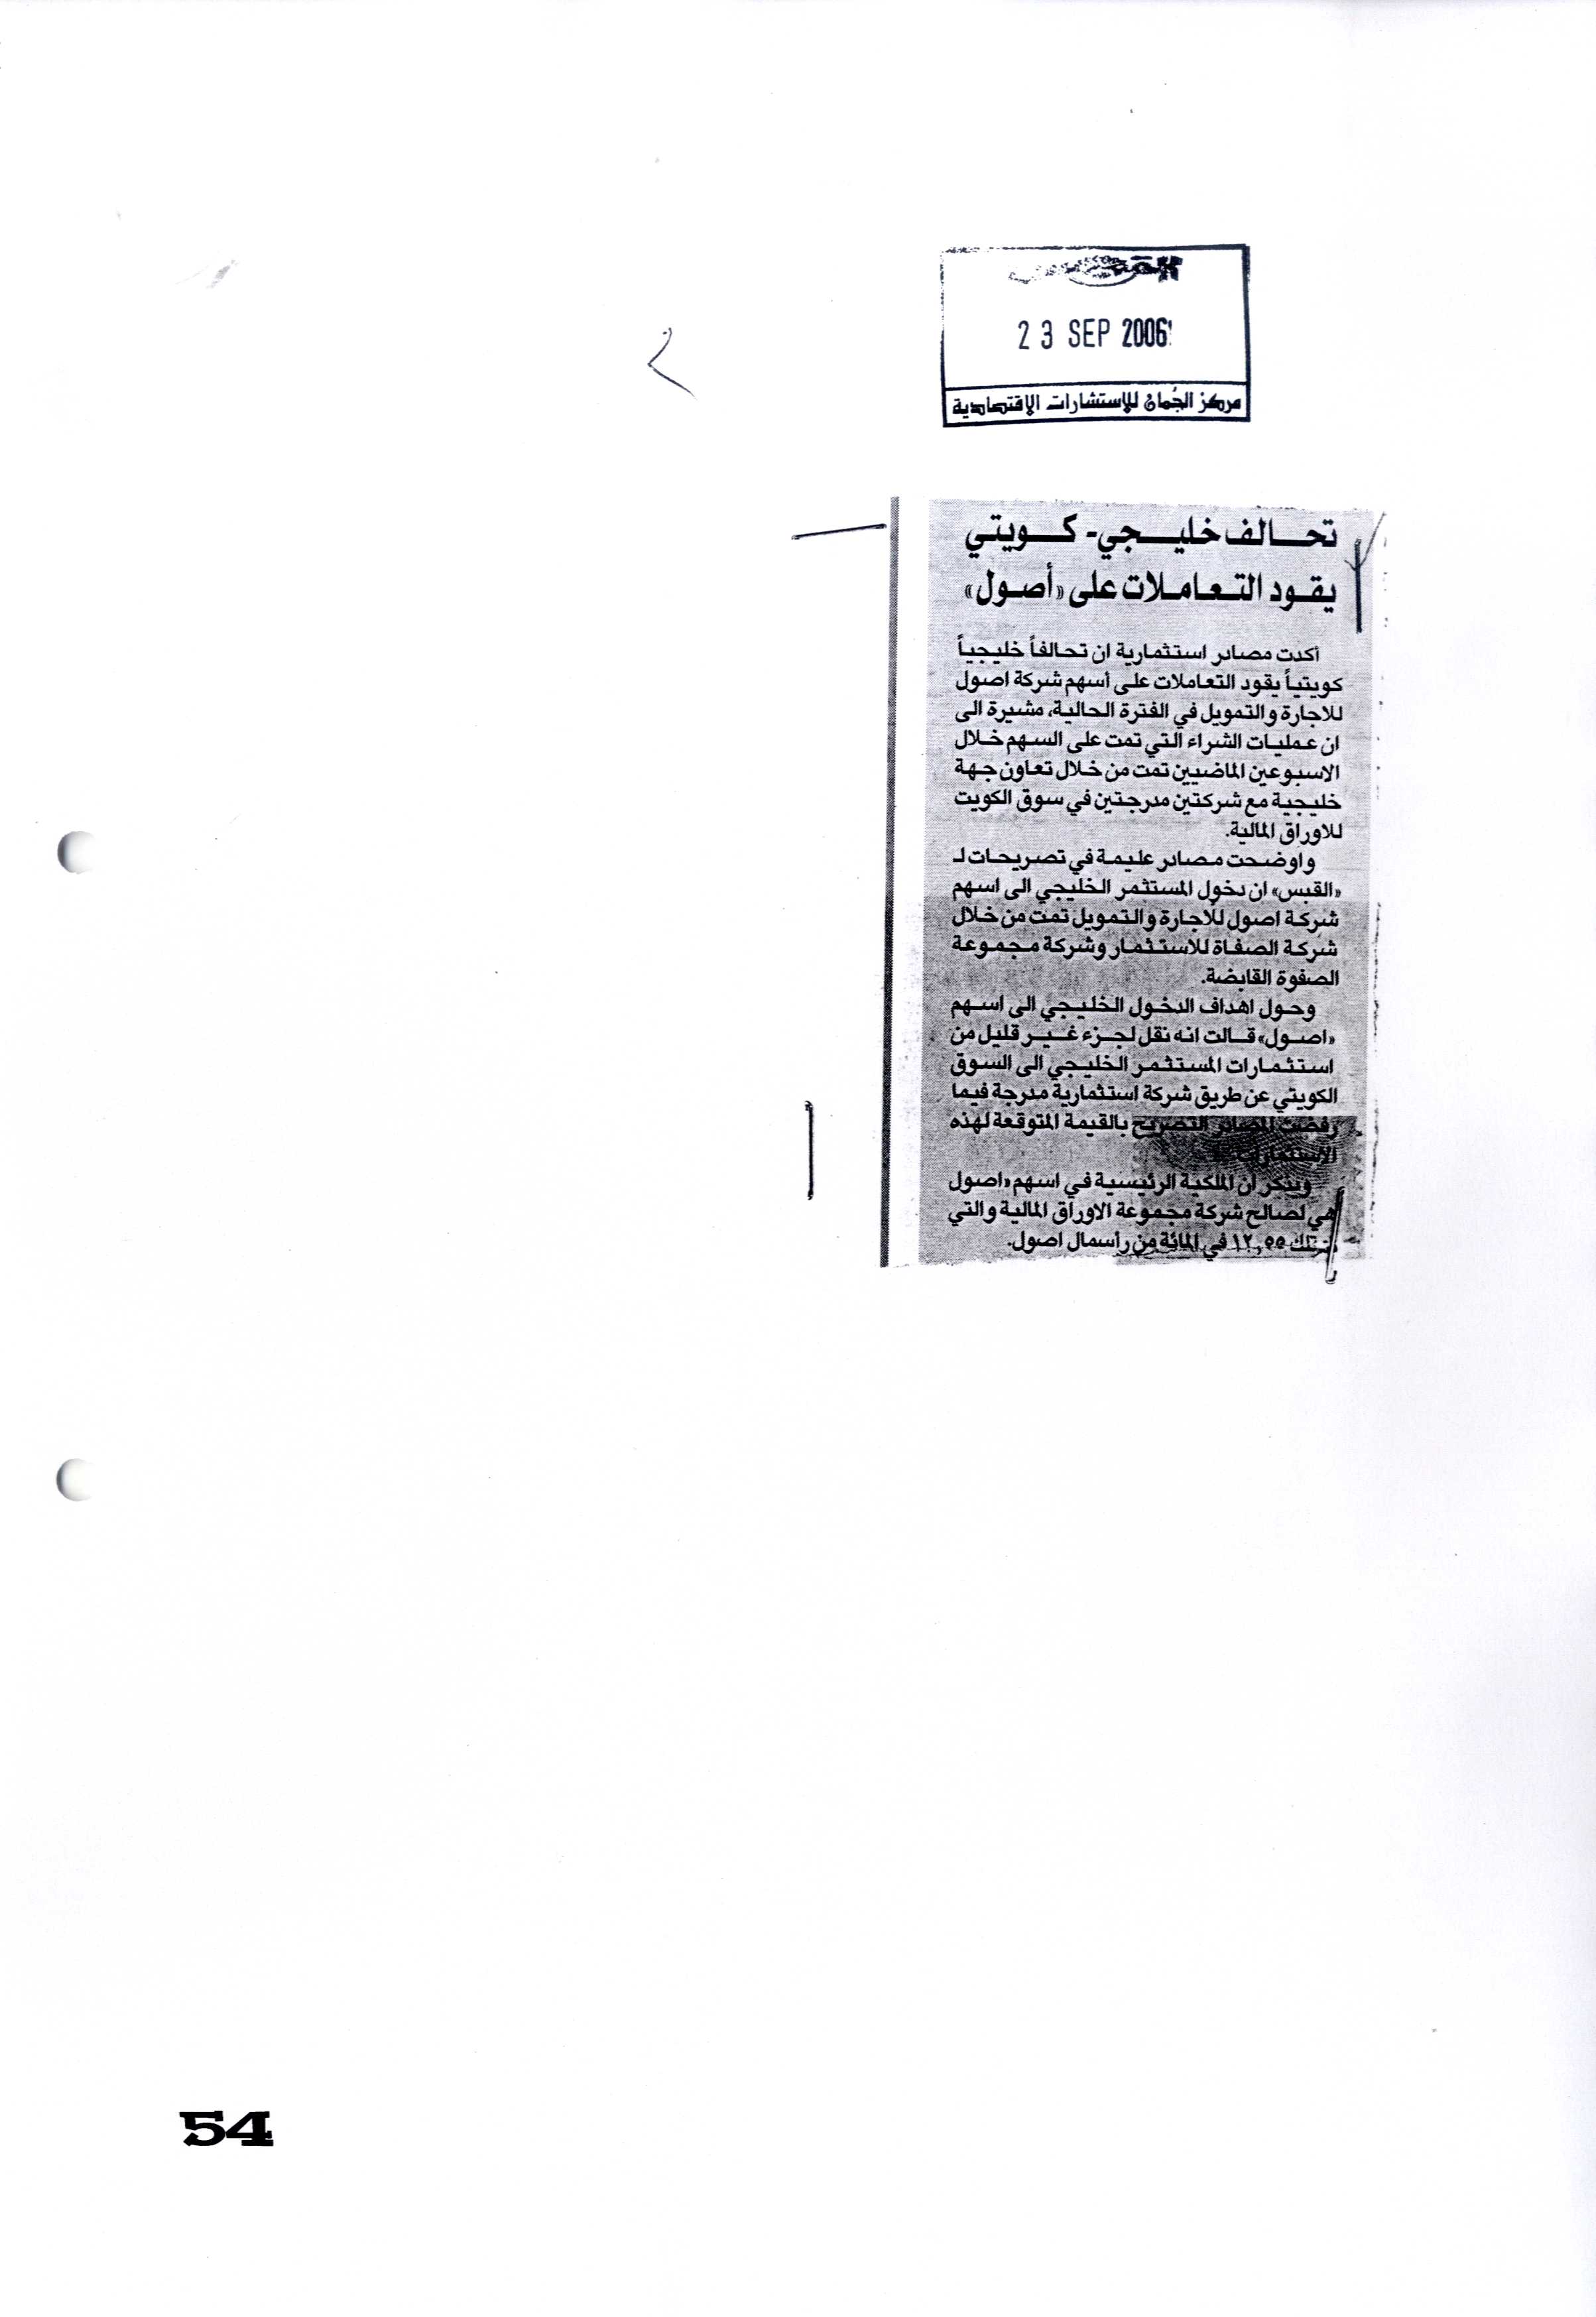 القبس
23 SEP 2006
مركز الجُمان للإستشارات الإقتصادية
تحالف خليجي - كويتي
يقود التعاملات على «أصول»
أكدت مصادر استثمارية ان تحالفاً خليجياً
كويتياً يقود التعاملات على أسهم شركة اصول
للاجارة والتمويل في الفترة الحالية، مشيرة الى
ان عمليات الشراء التي تمت على السهم خلال
الاسبوعين الماضيين تمت من خلال تعاون جهة
خليجية مع شركتين مدرجتين في سوق الكويت
للاوراق المالية.
واوضحت مصادر عليمة في تصريحات لـ
«القبس» ان دخول المستثمر الخليجي الى اسهم
شركة اصول للأجارة والتمويل تمت من خلال
شركة الصفاة للاستثمار وشركة مجموعة
الصفوة القابضة.
وحول اهداف الدخول الخليجي الى اسهم
«اصول» قالت انه نقل لجزء غير قليل من
استثمارات المستثمر الخليجي الى السوق
الكويتي عن طريق شركة استثمارية مدرجة فيما
رفضت المصادر التصريح بالقيمة المتوقعة لهذه
الاستثمارات.
ويذكر ان الملكية الرئيسية في اسهم «اصول
هي لصالح شركة مجموعة الاوراق المالية والتي
تمتلك ١٢,٥٥ في المائة من رأسمال اصول.
54